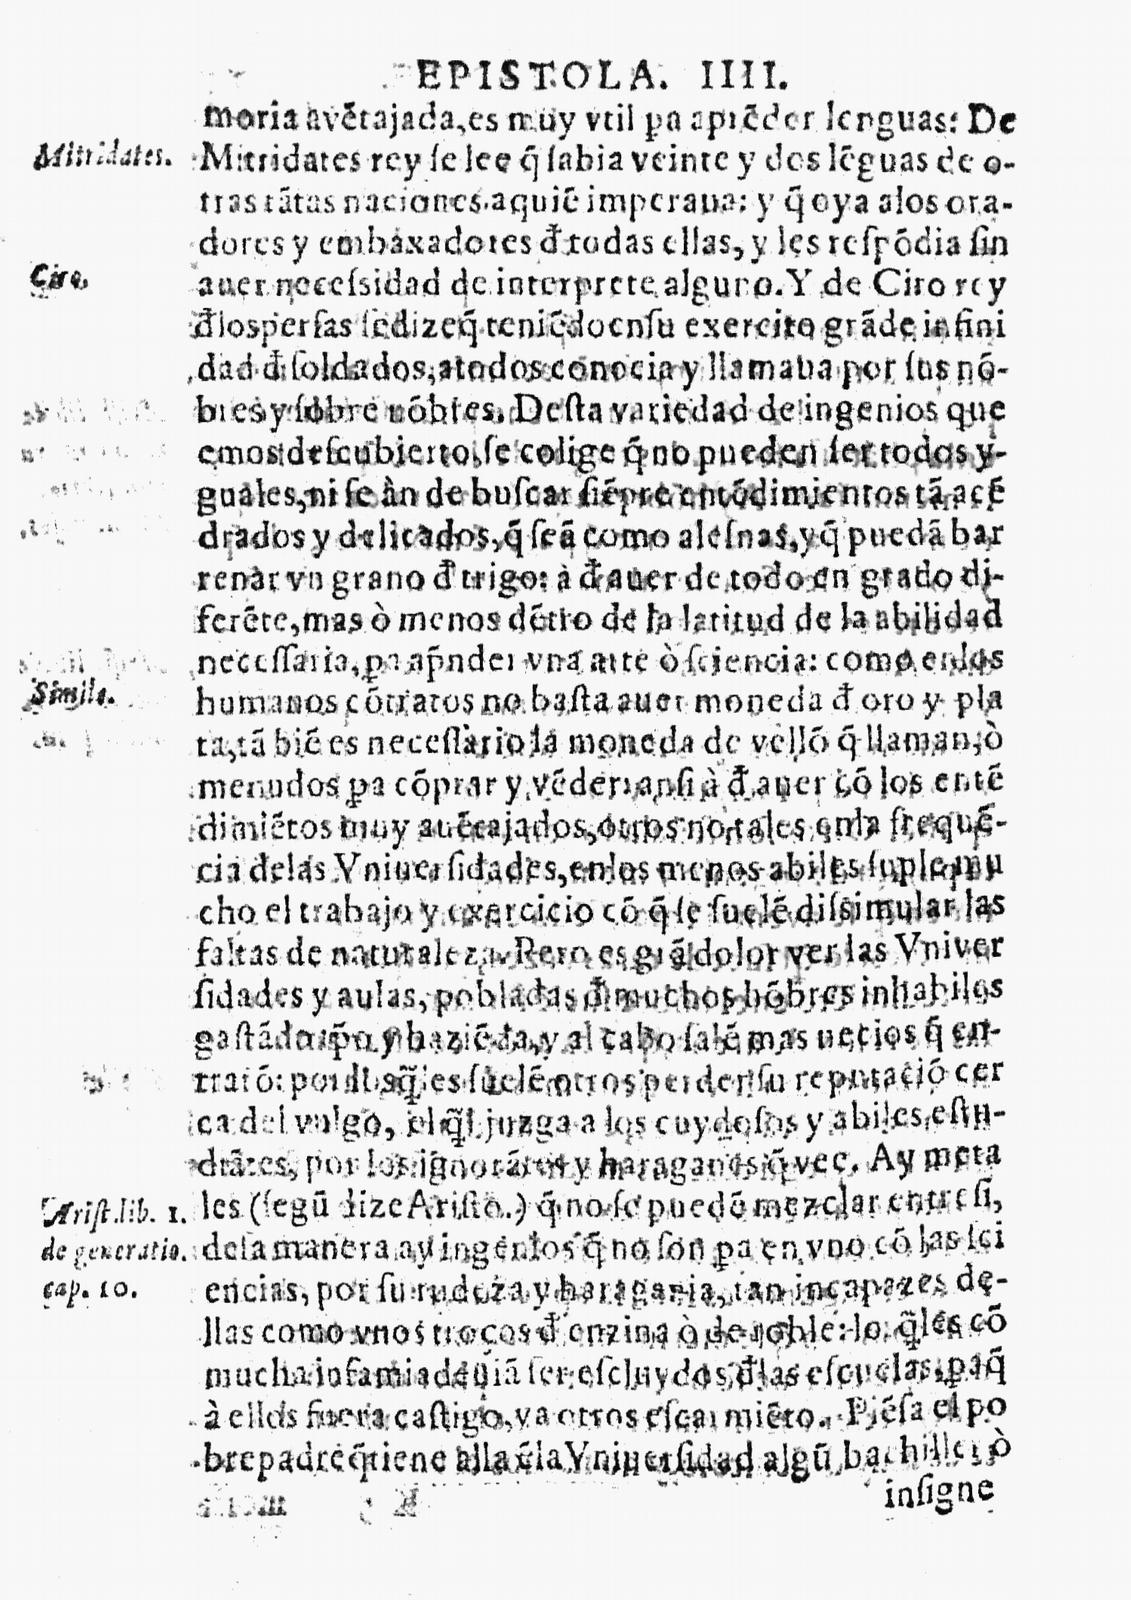 EPISTOLA. IIII.
moria avẽtajada, es muy vtil ꝑa aprẽder lenguas: De
Mitridates.
Mitridates rey ſe lee q̃ ſabia veinte y dos lẽguas de o-
tras tãtas naciones. a quiẽ imperaua: y q̃ oya a los ora-
dores y embaxadores đ todas ellas, y les reſpõdia ſin
Ciro.
auer neceſsidad de interprete alguno. Y de Ciro rey
đ los perſas ſe dize q̃ teniẽdo en ſu exercito grãde infini
dad đ ſoldados, a todos conocia y llamaua por ſus nõ-
bres y ſobre nõbres. Deſta variedad de ingenios que
emos deſcubierto, ſe colige q̃ no pueden ſer todos y-
guales, ni ſe àn de buſcar ſiẽpre entẽdimientos tã acẽ
drados y delicados, q̃ ſeã como aleſnas, y q̃ puedã bar
renar vn grano đ trigo: à đ auer de todo en grado di-
ferẽte, mas ò menos dẽtro de la latitud de la abilidad
neceſſaria, ꝑa apñder vna arte ò ſciencia: como en los
Simile.
humanos cõtratos no baſta auer moneda đ oro y pla
ta, tã biẽ es neceſſario la moneda de vellõ q̃ llaman, ò
menudos ꝑa cõprar y vẽder: anſi à đ auer cõ los entẽ
dimiẽtos muy auẽtajados, otros no tales en la frequẽ-
cia de las Vniuerſidades, en los menos abiles ſuple mu
cho el trabajo y exercicio cõ q̃ ſe ſuelẽ diſsimular las
faltas de naturaleza. Pero es grã dolor ver las Vniver
ſidades y aulas, pobladas đ muchos hõbres inhabiles
gaſtãdo tp̃o y haziẽda, y al cabo ſalẽ mas necios q̃ en-
trarõ: por los q̃les ſuelẽ otros perder ſu reputaciõ cer
ca del vulgo, el q̃l juzga a los cuydoſos y abiles, eſtu-
diãtes, por los ignorãtes y haraganes q̃ vee. Ay meta
Ariſt. lib. 1.
les (ſegũ dize Ariſto.) q̃ no ſe puedẽ mezclar entre ſi,
de generatio.
de la manera ay ingenios q̃ no ſon ꝑa en vno cõ las ſci
cap. 10.
encias, por ſu rudeza y haragania, tan incapazes de-
llas como vnos troços đ enzina ò de roble: lo q̃les cõ
mucha infamia deuiã ſer eſcluydos đ las eſcuelas, ꝑa q̃
à ellos fuera caſtigo, y a otros eſcarmiẽto. Piẽſa el po
bre padre q̃ tiene alla ẽ la Vniuerſidad algũ bachiller ò
inſigne